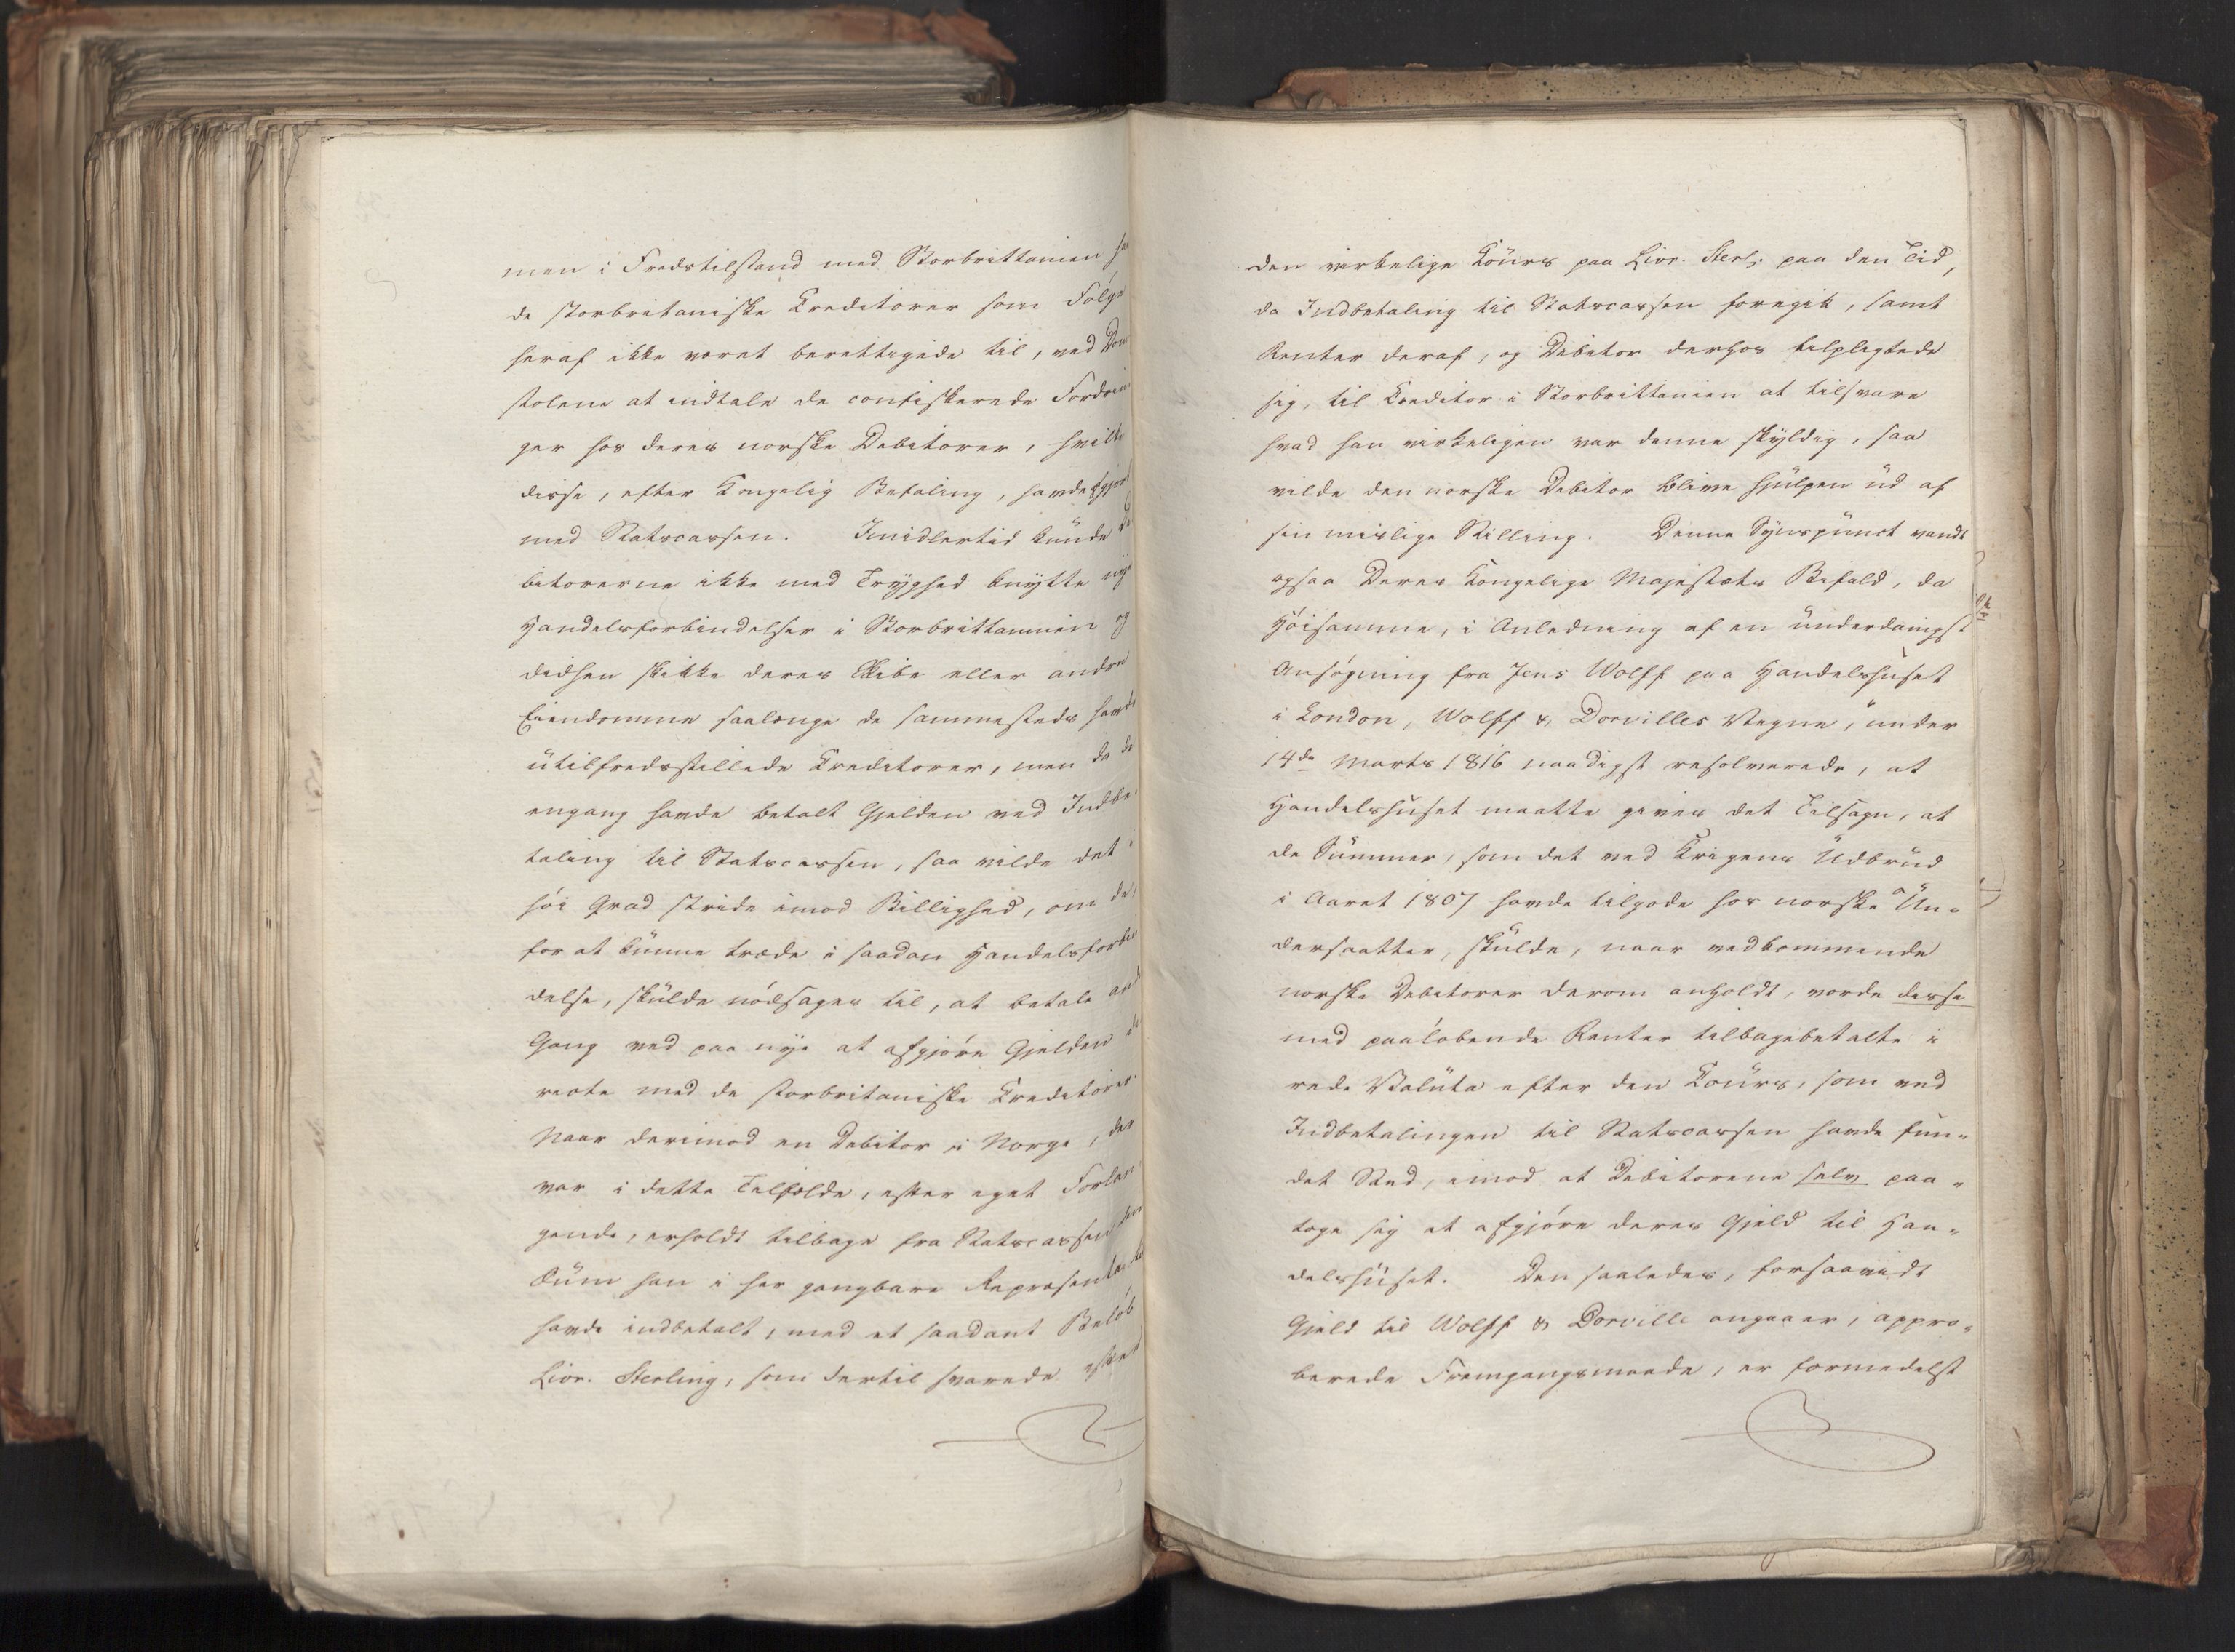 men i Fredstilstand med Storbrittanien ha
de storbritaniske Creditorer som Følge
heraf ikke været berettigede til, ved Dom
stolene at indtale de confiskerede Fordrin
ger hos deres norske Debitorer, hvilke
disse, efter Kongelig Befaling, havde afgjort
med Statscassen. Imidlertid kunde De
bitorerne ikke med Tryghed knytte nye
Handelsforbindelser i Storbrittannien og
didhen skikke deres Skibe eller andre
Eiendomme saalænge de sammesteds havde
utilfredsstillede Creditorer, men da de
engang havde betalt Gjelden ved Indbe
taling til Statscassen, saa vilde det i
høi Grad stride imod Billighed, om de,
for at kunne træde i saadan Handelsforbin
delse, skulde nødsages til, at betale anden
Gang ved paa nye at afgjøre Gjelden di
recte med de storbritaniske Creditorer.
Naar derimod en Debitor i Norge, der
var i dette Tilfælde, efter eget Forlan
gende, erholdt tilbage fra Statscassen den
Sum han i her gangbare Repræsentativ
havde indbetalt, med et saadant Beløb
Livr. Sterling, som dertil svarede efter
den virkelige Cours paa Livr. Sterl. paa den Tid,
da Indbetaling til Statscassen foregik, samt
Renter deraf, og Debitor derhos tilpligtede
sig, til Creditor i Storbrittanien at tilsvare
hvad han virkeligen var denne skyldig, saa
vilde den norske Debitor blive hjulpen ud af
sin mislige Stilling. Denne Synspunct vandt
ogsaa Deres Kongelige Majestæts Bifald, da
Høisamme, i Anledning af en underdanigst
Ansøgning fra Jens Wolff paa Handelshuset
i London, Wolff & Dorvilles Vegne, under
14de Marts 1816 naadigst resolverede, at
Handelshuset maatte gives det Tilsagn, at
de Summer, som det ved Krigens Udbrud
i Aaret 1807 havde tilgode hos norske Un-
dersaatter, skulde, naar vedkommende
norske Debitorer derom anholdt, vorde disse
med paaløbende Renter tilbagebetalte i
rede Valuta efter den Cours, som ved
Indbetalingen til Statscassen havde fun-
det Sted, imod at Debitorene selv paa-
toge sig at afgjøre deres Gjeld til Han-
delshuset. Den saaledes, forsaavidt
Gjeld til Wolff & Dorville angaaer, appro-
berede Fremgangsmaade, er formedelst